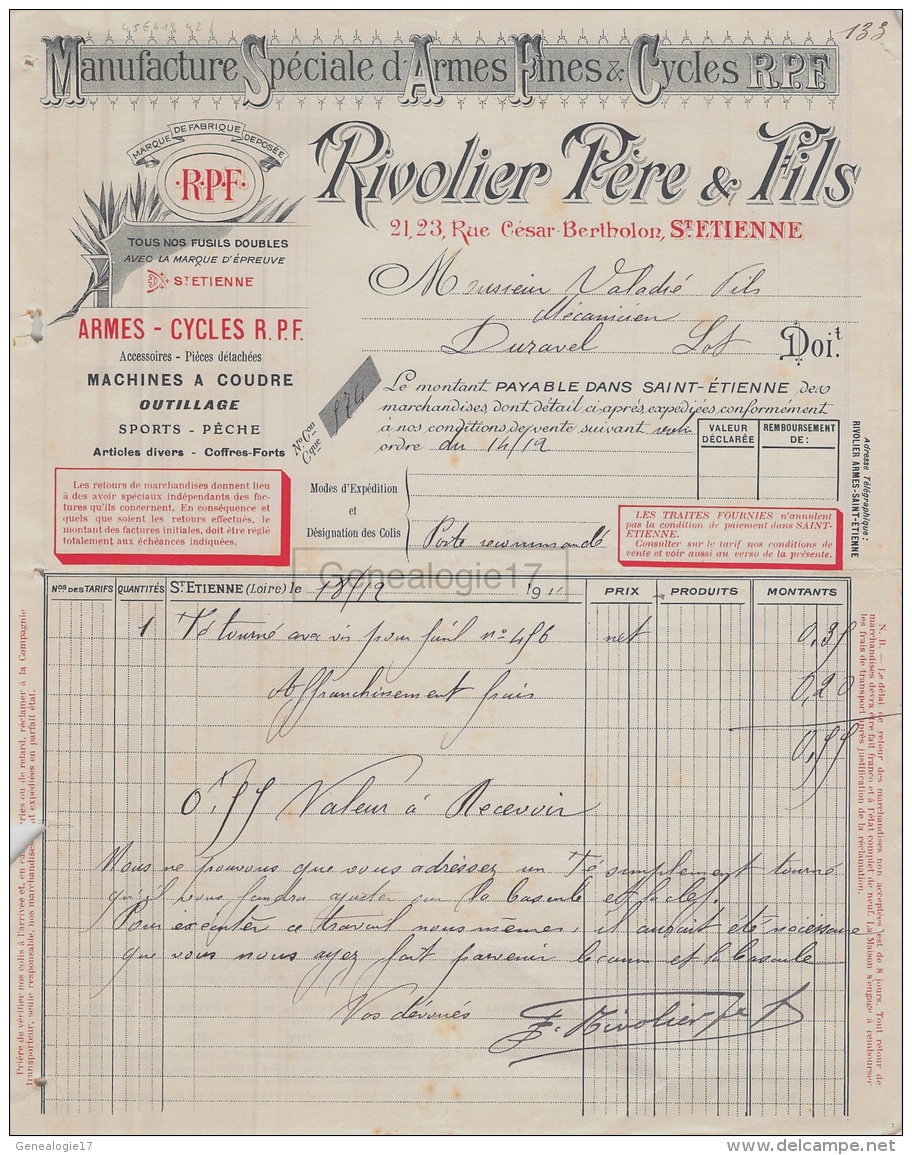 133
Manufacture Spéciale d'Armes Fines & Cycles R.P.F.
MARQUE DE FABRIQUE DEPOSÉE
R.P.F.
Rivolier Père & Fils
21, 23, Rue César-Bertholon, ST ETIENNE
TOUS NOS FUSILS DOUBLES
AVEC LA MARQUE D'ÉPREUVE
ST ETIENNE
Monsieur Valadié Fils
Mécanicien
Duravel Lot Doit.
ARMES - CYCLES R.P.F.
Accessoires - Pièces détachées
MACHINES A COUDRE
OUTILLAGE
SPORTS - PÊCHE
Articles divers - Coffres-Forts
Le montant PAYABLE DANS SAINT-ÉTIENNE des
marchandises, dont détail ci-après, expédiées conformément
à nos conditions de vente suivant votre
ordre du 14/12
VALEUR DÉCLARÉE
REMBOURSEMENT DE:
Adresse Télégraphique:
RIVOLIER ARMES-SAINT-ETIENNE
Les retours de marchandises donnent lieu
à des avoir spéciaux indépendants des fac-
tures qu'ils concernent. En conséquence et
quels que soient les retours effectués, le
montant des factures initiales, doit être réglé
totalement aux échéances indiquées.
Modes d'Expédition
et
Désignation des Colis
Poste recommandé
LES TRAITES FOURNIES n'annulent
pas la condition de paiement dans SAINT-
ETIENNE.
Consulter sur le tarif nos conditions de
vente et voir aussi au verso de la présente.
Genealogie17
Nos DES TARIFS QUANTITÉS ST ETIENNE (Loire) le 18/12 19 PRIX PRODUITS MONTANTS
1 Té tourné avec vis pour fusil no 456 net 0,35
Affranchissement frais 0,20
0,55
0f,55 Valeur à Recevoir
Nous ne pouvons que vous adresser un Té simplement tourné
qu'il vous faudra ajuster sur la bascule et la clef.
Pour exécuter ce travail nous mêmes, il aurait été nécessaire
que vous nous ayez fait parvenir le canon et la bascule
Vos dévoués
Rivolier
Prière de vérifier nos colis à l'arrivée et, en cas
ries ou de retard, réclamer à la Compagnie
transporteur, seule responsable, nos marchandises
t expédiées en parfait état.
N. B. — Le délai de retour des marchandises non acceptées est de 8 jours. Tout retour de
marchandises devra être fait franco et à l'état complet de neuf. La Maison s'engage à rembourser
les frais de transport après justification de la réclamation.
Genealogie17
www.delcampe.net